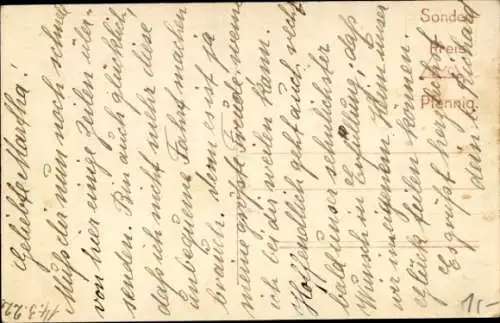 14.3.22.
Geliebte Martha!
Muß dir nun noch schnell
von hier einige Zeilen über-
senden. Bin auch glücklich,
daß ich nicht mehr diese
unbequeme Fahrt machen
brauch. denn es ist ja
meine größte Freude wenn
ich bei dir weilen kann.
Hoffendlich geht auch recht
bald unser sehnlichster
Wunsch in Erfüllung, daß
wir im eigenen Heim unser
Glück teilen können.
Es grüßt herzlichst
dein l. Richard
Sonder
Preis
Pfennig.
1,-